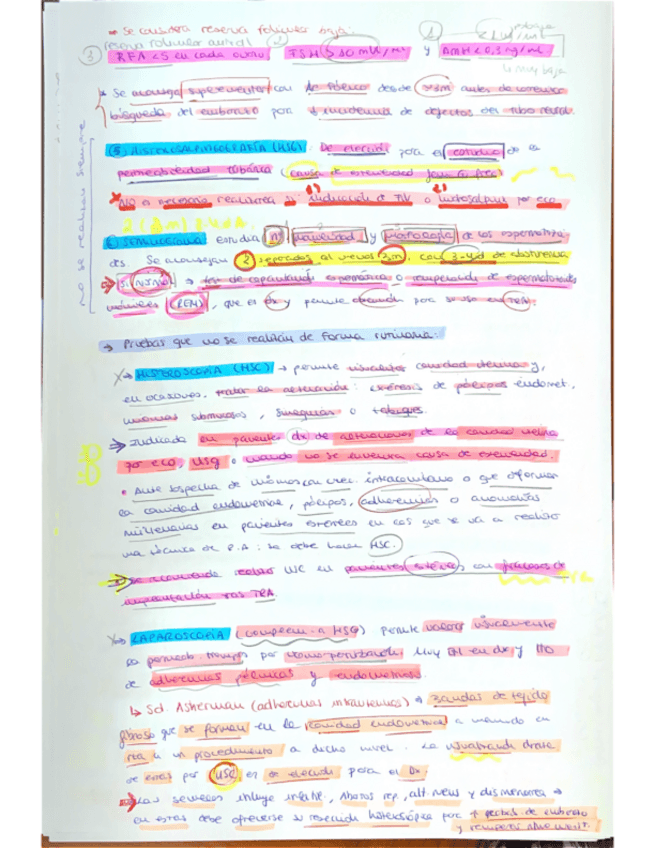 → Se considera reserva folicular baja:
reserva folicular antral
③ RFA <5 en cada ovario ② TSH > 10 mU/ml y ① AMH < 0,5 ng/mL
muy baja
* Se aconseja suplementar con Ac. fólico desde >3m antes de comenzar
búsqueda del embarazo por ↓ incidencia de defectos del tubo neural.
no se realizan siempre
(5) HISTEROSALPINGOGRAFÍA (HSG): De elección para el estudio de la
permeabilidad tubárica (causa de esterilidad
NO es necesario realizarla si: 1) indicación de FIV o 2) hidrosalpinx por eco
6) SEMINOGRAMA estudia nº, movilidad y morfología de los espermatozoi-
des. Se aconsejan 2 separados al menos 3m, con 3-4d de abstinencia
Si NORMAL → test de capacitación espermática o recuperación de espermatozoides
móviles (REM), que es dx y permite elección para su uso en TRA.
→ Pruebas que no se realizan de forma rutinaria:
→ HISTEROSCOPIA (HSC) → permite visualizar cavidad uterina y,
en ocasiones, tratar la alteración: exéresis de pólipos endomet,
miomas submucosos, sinequias o tabiques.
→ Indicada en pacientes dx de alteraciones de la cavidad uterina
por eco, HSG o cuando no se encuentra causa de esterilidad.
• Ante sospecha de miomas con crec. intracavitario o que deforman
la cavidad endometrial, pólipos, adherencias o anomalías
müllerianas en pacientes estériles en las que se va a realizar
una técnica de R.A: se debe hacer HSC.
→ Se recomienda realizar HSC en pacientes estériles con fracasos de
implantación tras TRA.
→ LAPAROSCOPIA (complem. a HSG) Permite valorar visualmente
la permeab. tubárica por cromopertubación. Muy útil en dx y tto
de adherencias pélvicas y endometriosis.
↳ Sd. Asherman (adherencias intrauterinas) → bandas de tejido
fibroso que se forman en la cavidad endometrial a menudo en
rel a un procedimiento a dicho nivel. La visualización directa
de estas por HSC es de elección para el Dx.
→ Las secuelas incluye infertil., abortos rep., alt. mens y dismenorrea →
en estas debe ofrecerse su resección histeroscópica por ↑ perdidas de embarazo